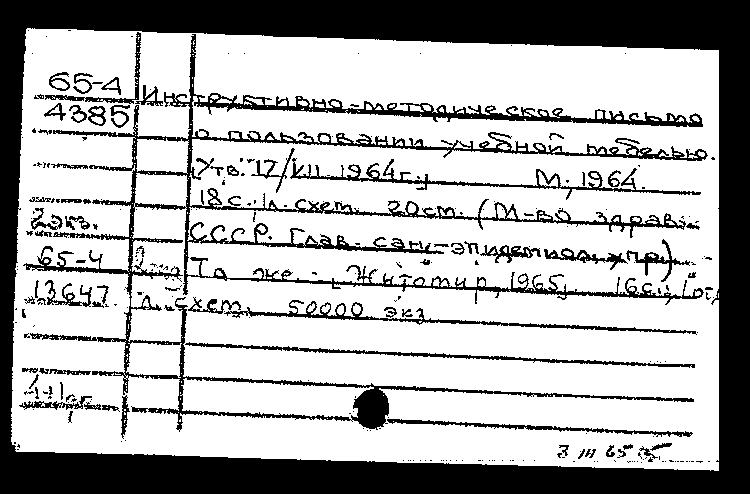 65-4 Инструктивно-методическое письмо
4385 о пользовании учебной мебелью.
Утв. 17/VII 1964г.] М., 1964.
18с. 1л. схем. 20см. (М-во здрав.
2 экз. СССР. Глав. сан.-эпидемиол. упр)
65-4 То же. - Житомир, 1965. 16с., 1 отд.
13647 л. схем. 50000 экз.
3 III 65